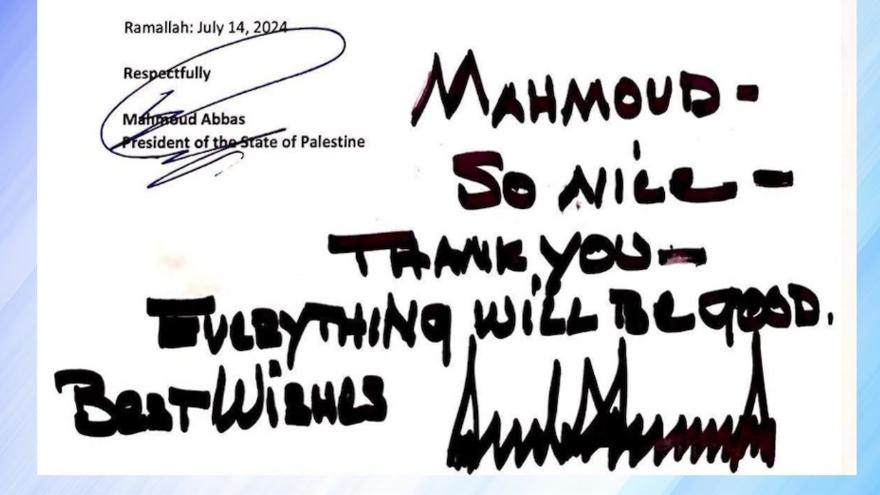 Ramallah: July 14, 2024
Respectfully
Mahmoud Abbas
President of the State of Palestine
MAHMOUD -
SO NICE -
THANK YOU -
EVERYTHING WILL BE GOOD.
BEST WISHES